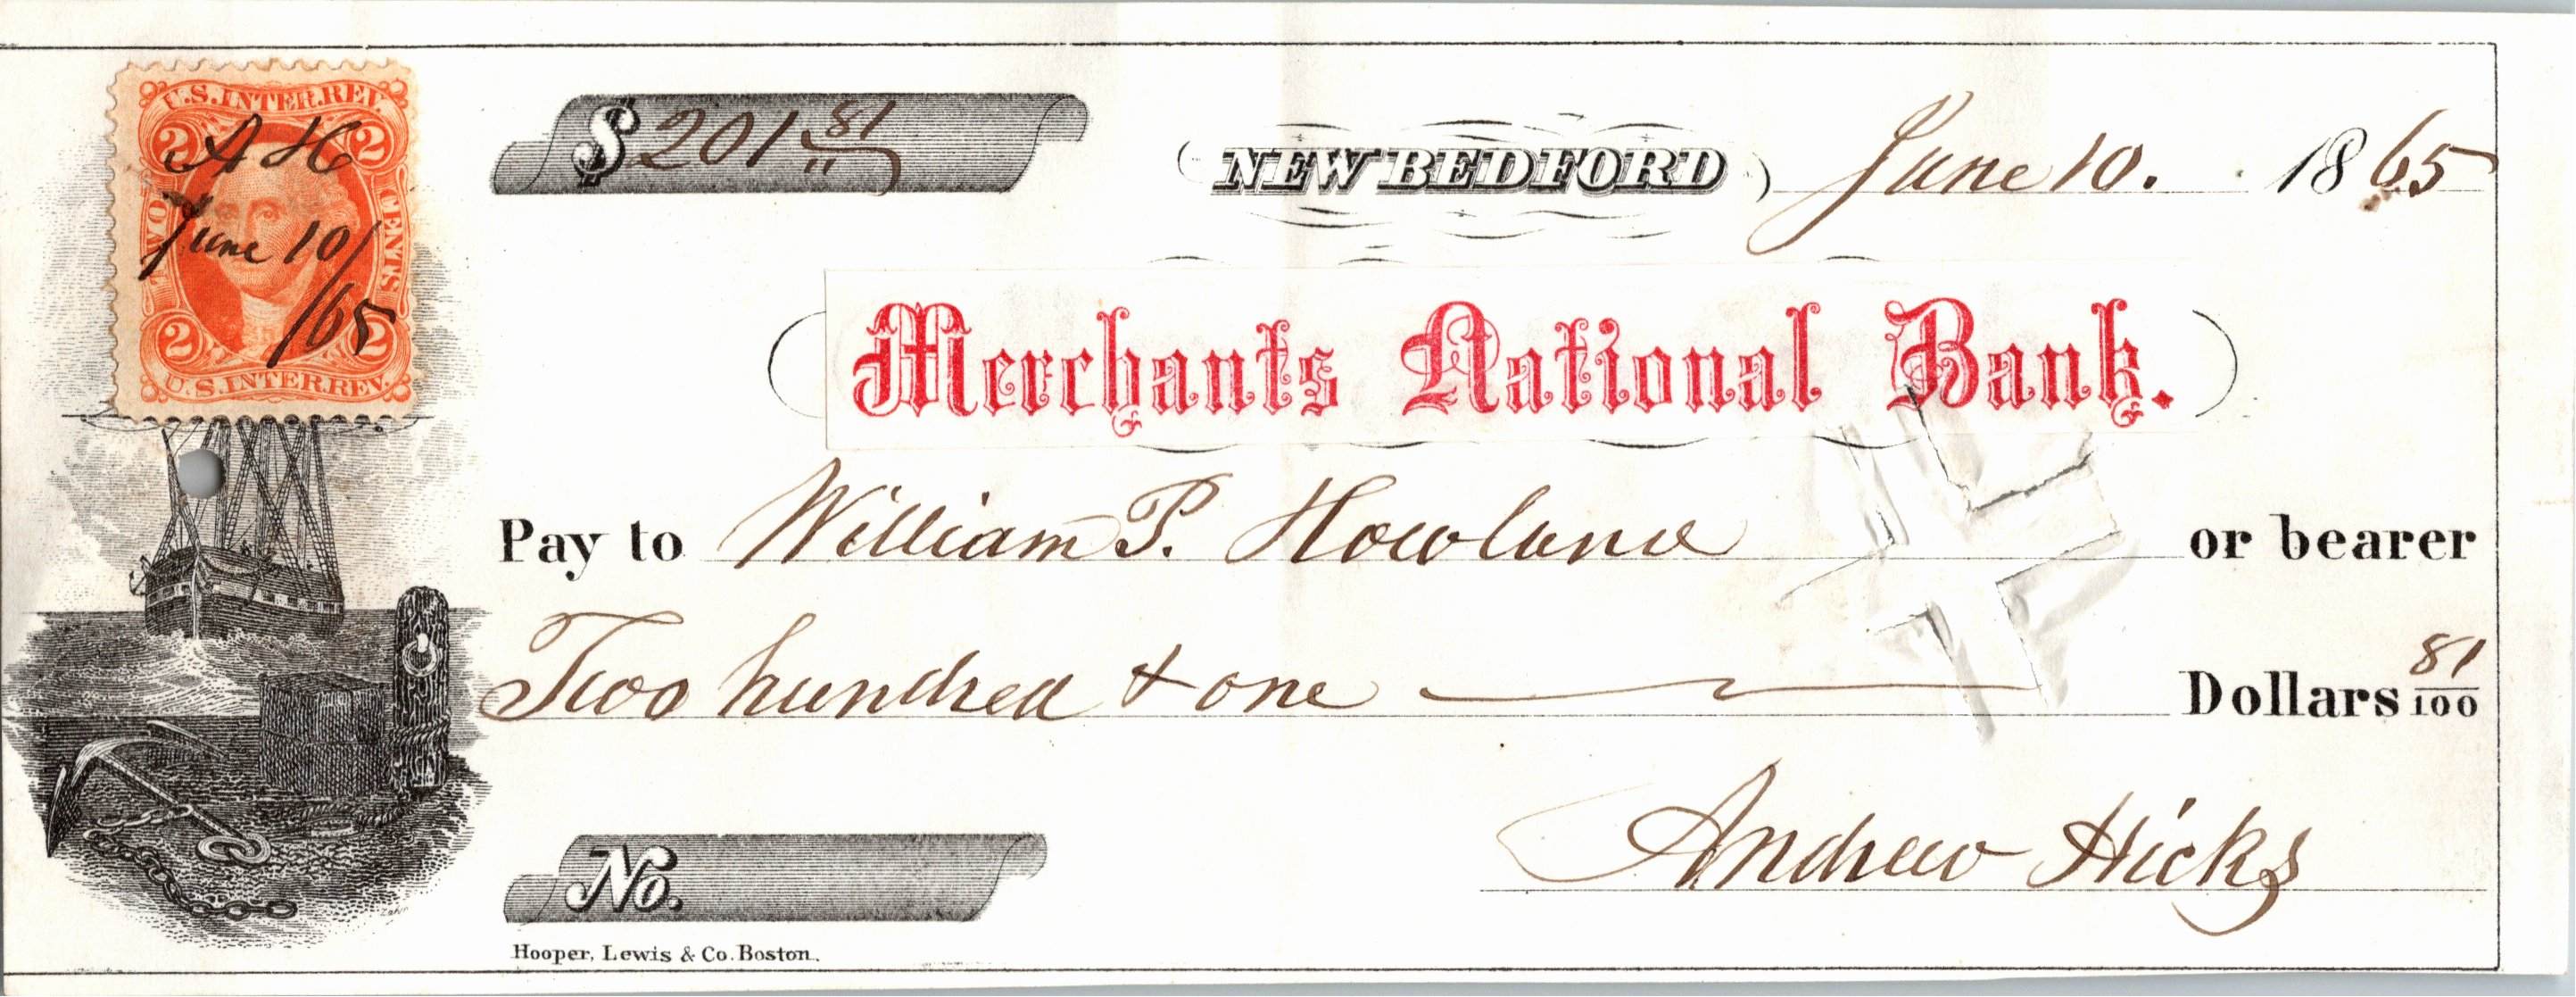 U.S. INTER. REV.
2 2
A H
TWO CENTS
June 10/
/65
2 2
U.S. INTER. REV.
$ 201 81/"
NEW BEDFORD June 10. 1865
Merchants National Bank.
Pay to William P. Howland or bearer
Two hundred & one Dollars 81/100
Andrew Hicks
No.
Hooper, Lewis & Co. Boston.